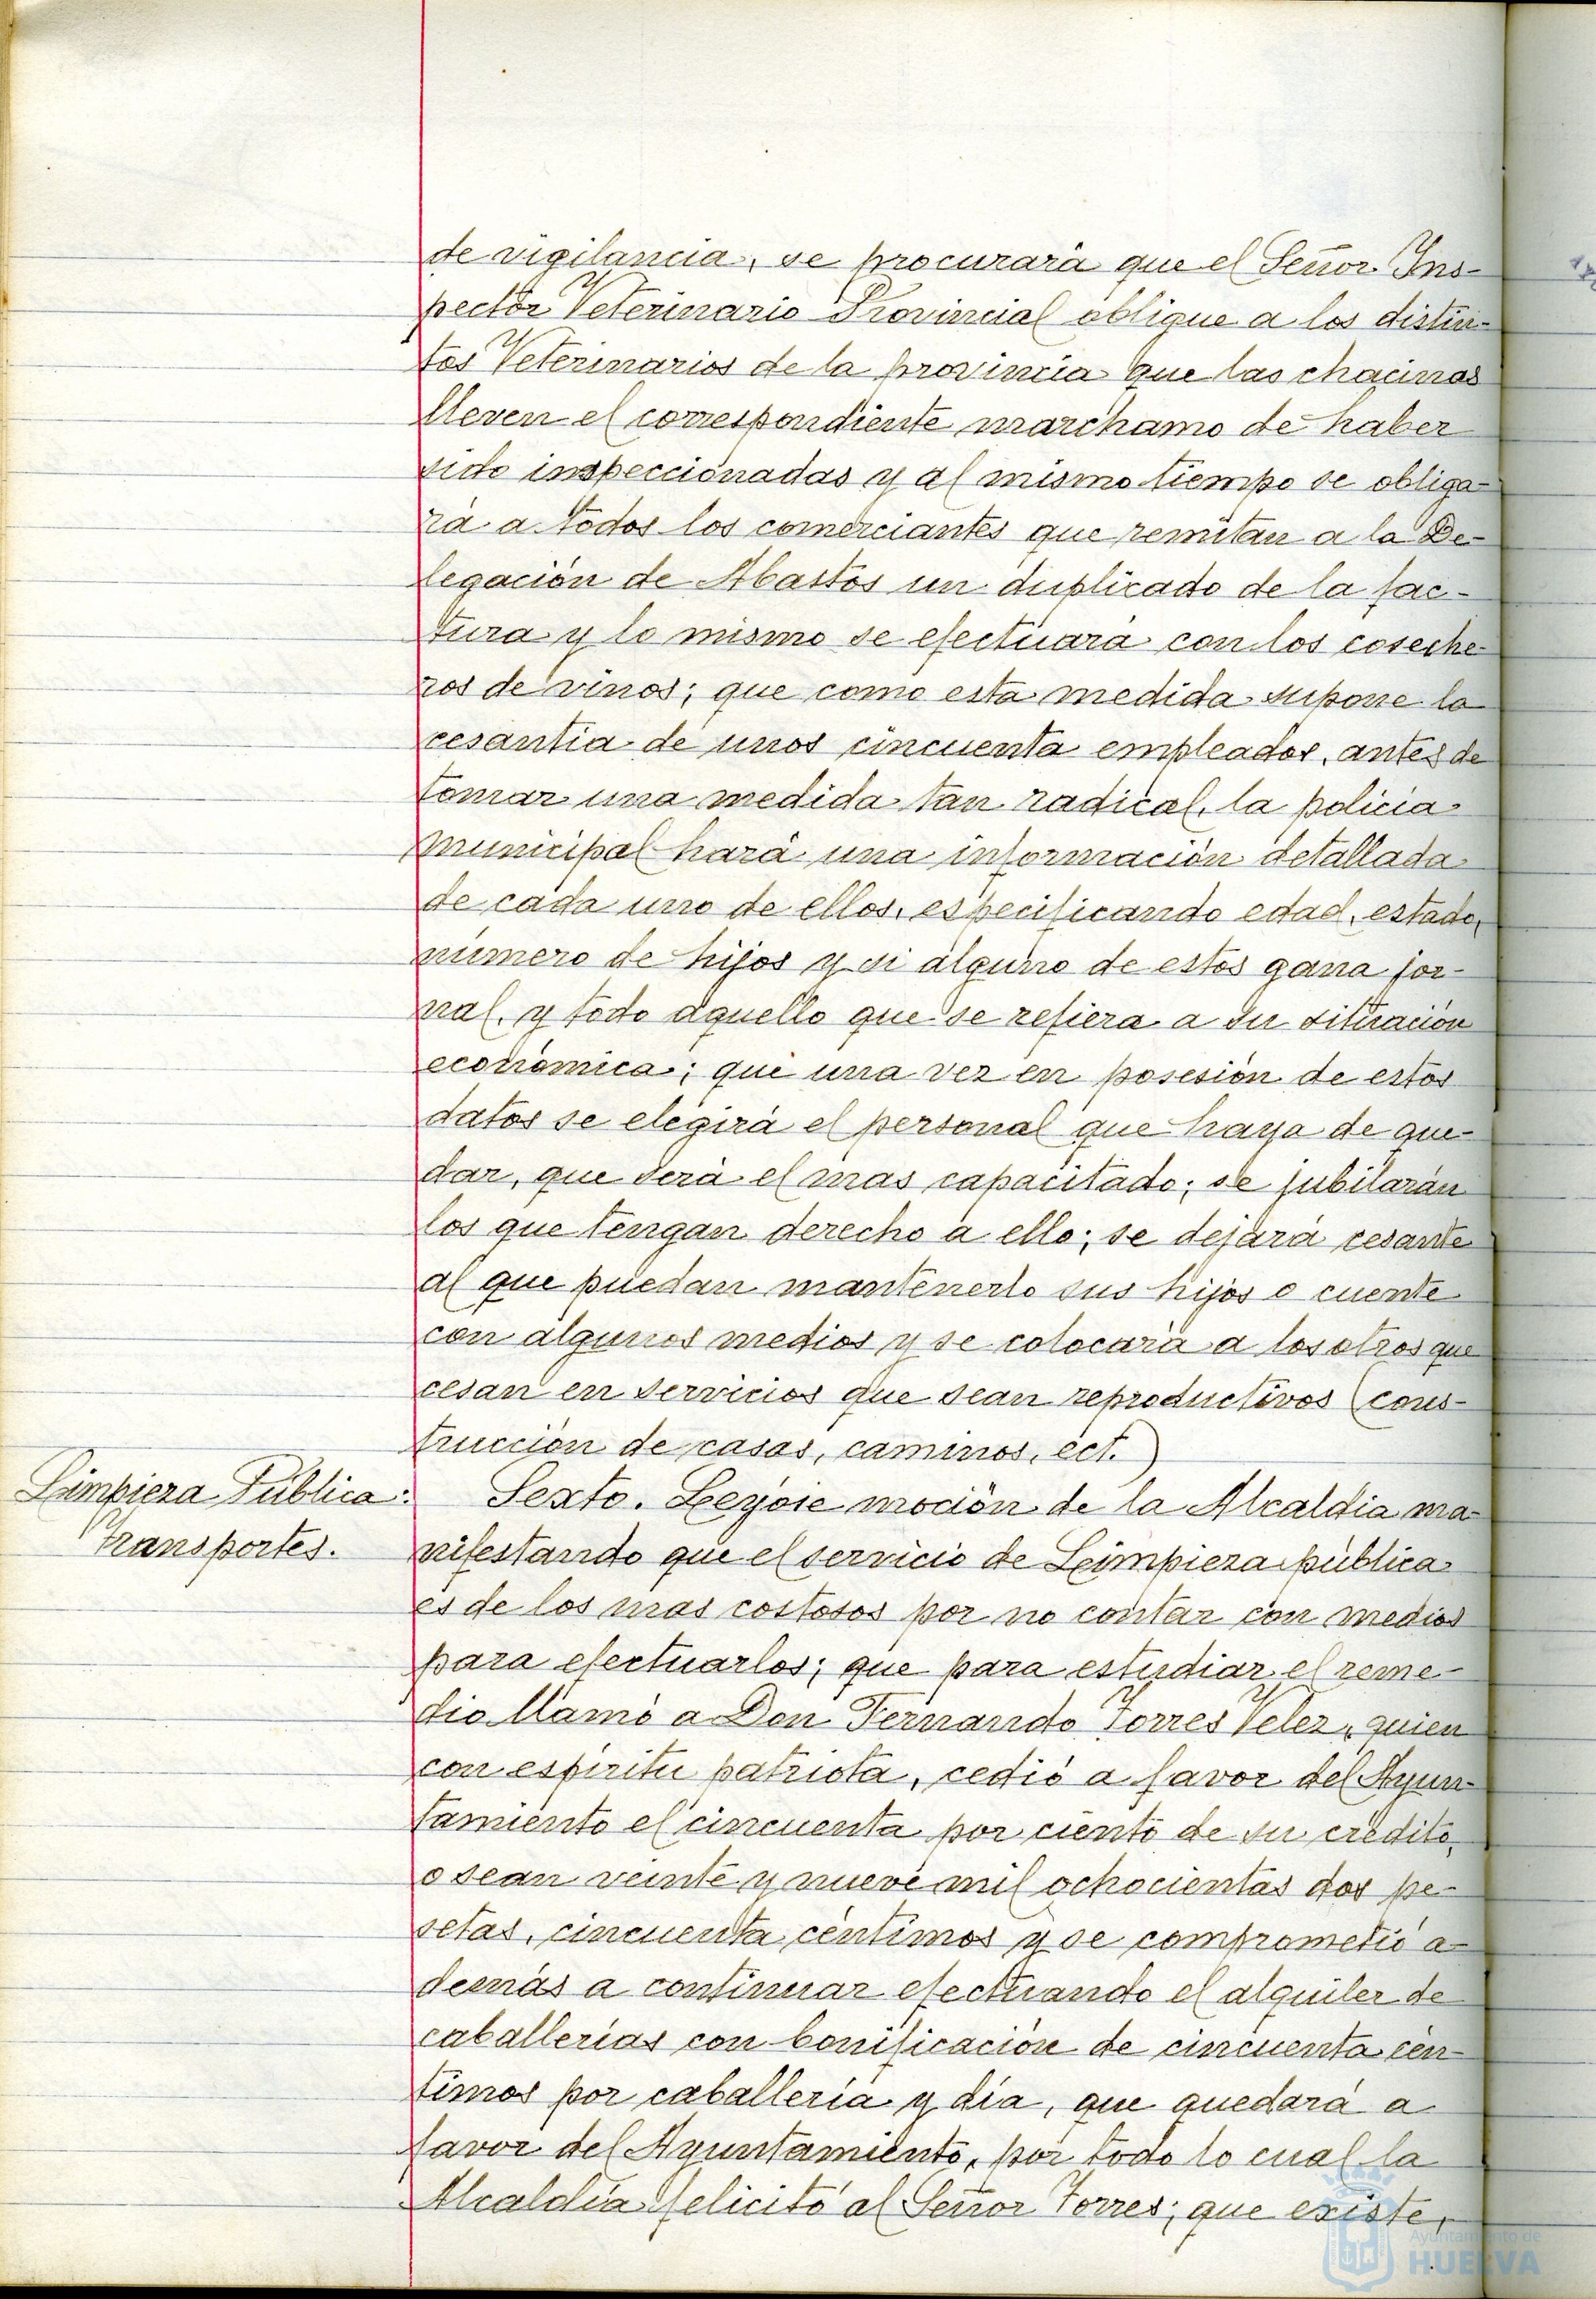 de vigilancia, se procurará que el Señor Ins-
pector Veterinario Provincial oblique a los distin-
tos Veterinarios de la provincia que las chacinas
lleven el correspondiente marchamo de haber
sido inspeccionadas y al mismo tiempo se obliga-
rá a todos los comerciantes que remitan a la De-
legación de Abastos un duplicado de la fac-
tura y lo mismo se efectuará con los coseche-
ros de vinos; que como esta medida supone la
cesantía de unos cincuenta empleados, antes de
tomar una medida tan radical, la policía
municipal hará una información detallada
de cada uno de ellos, especificando edad, estado,
número de hijos y si alguno de estos gana jor-
nal, y todo aquello que se refiera a su situación
económica; que una vez en posesión de estos
datos se elegirá el personal que haya de que-
dar, que será el mas capacitado; se jubilarán
los que tengan derecho a ello; se dejará cesante
al que puedan mantenerlo sus hijos o cuente
con algunos medios y se colocará a los otros que
cesan en servicios que sean reproductivos (cons-
trucción de casas, caminos, ect.)
Limpieza Pública:
Transportes.
Sexto. Leyóse moción de la Alcaldía ma-
nifestando que el servicio de Limpieza pública
es de los mas costosos por no contar con medios
para efectuarlos; que para estudiar el reme-
dio llamó a Don Fernando Torres Velez, quien
con espíritu patriota, cedió a favor del Ayun-
tamiento el cincuenta por ciento de su crédito,
o sean veinte y nueve mil ochocientas dos pe-
setas, cincuenta céntimos y se comprometió a-
demás a continuar efectuando el alquiler de
caballerías con bonificación de cincuenta cén-
timos por caballería y día, que quedará a
favor del Ayuntamiento, por todo lo cual la
Alcaldía felicitó al Señor Torres; que existe,
Ayuntamiento de
HUELVA